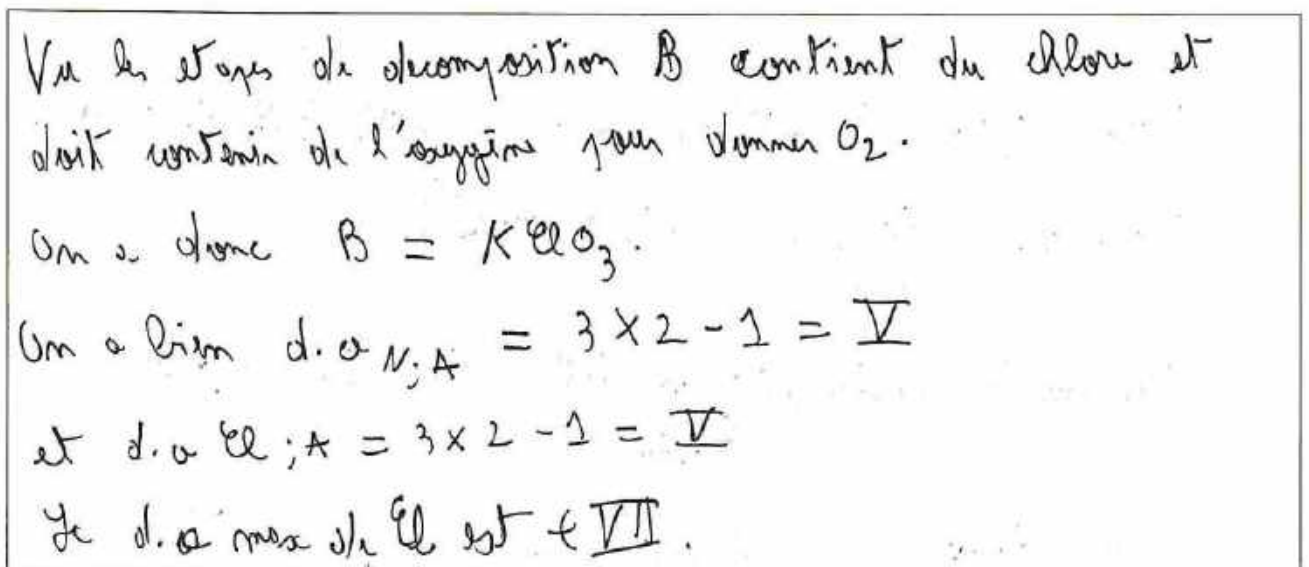 Vu les etapes de decomposition B contient du chlore et
doit contenir de l'oxygène pour donner O₂.
On a donc B = KClO₃.
On a bien d.o N;A = 3 × 2 - 1 = V
et d.o Cl;A = 3 × 2 - 1 = V
Le d.o max de Cl est + VII.